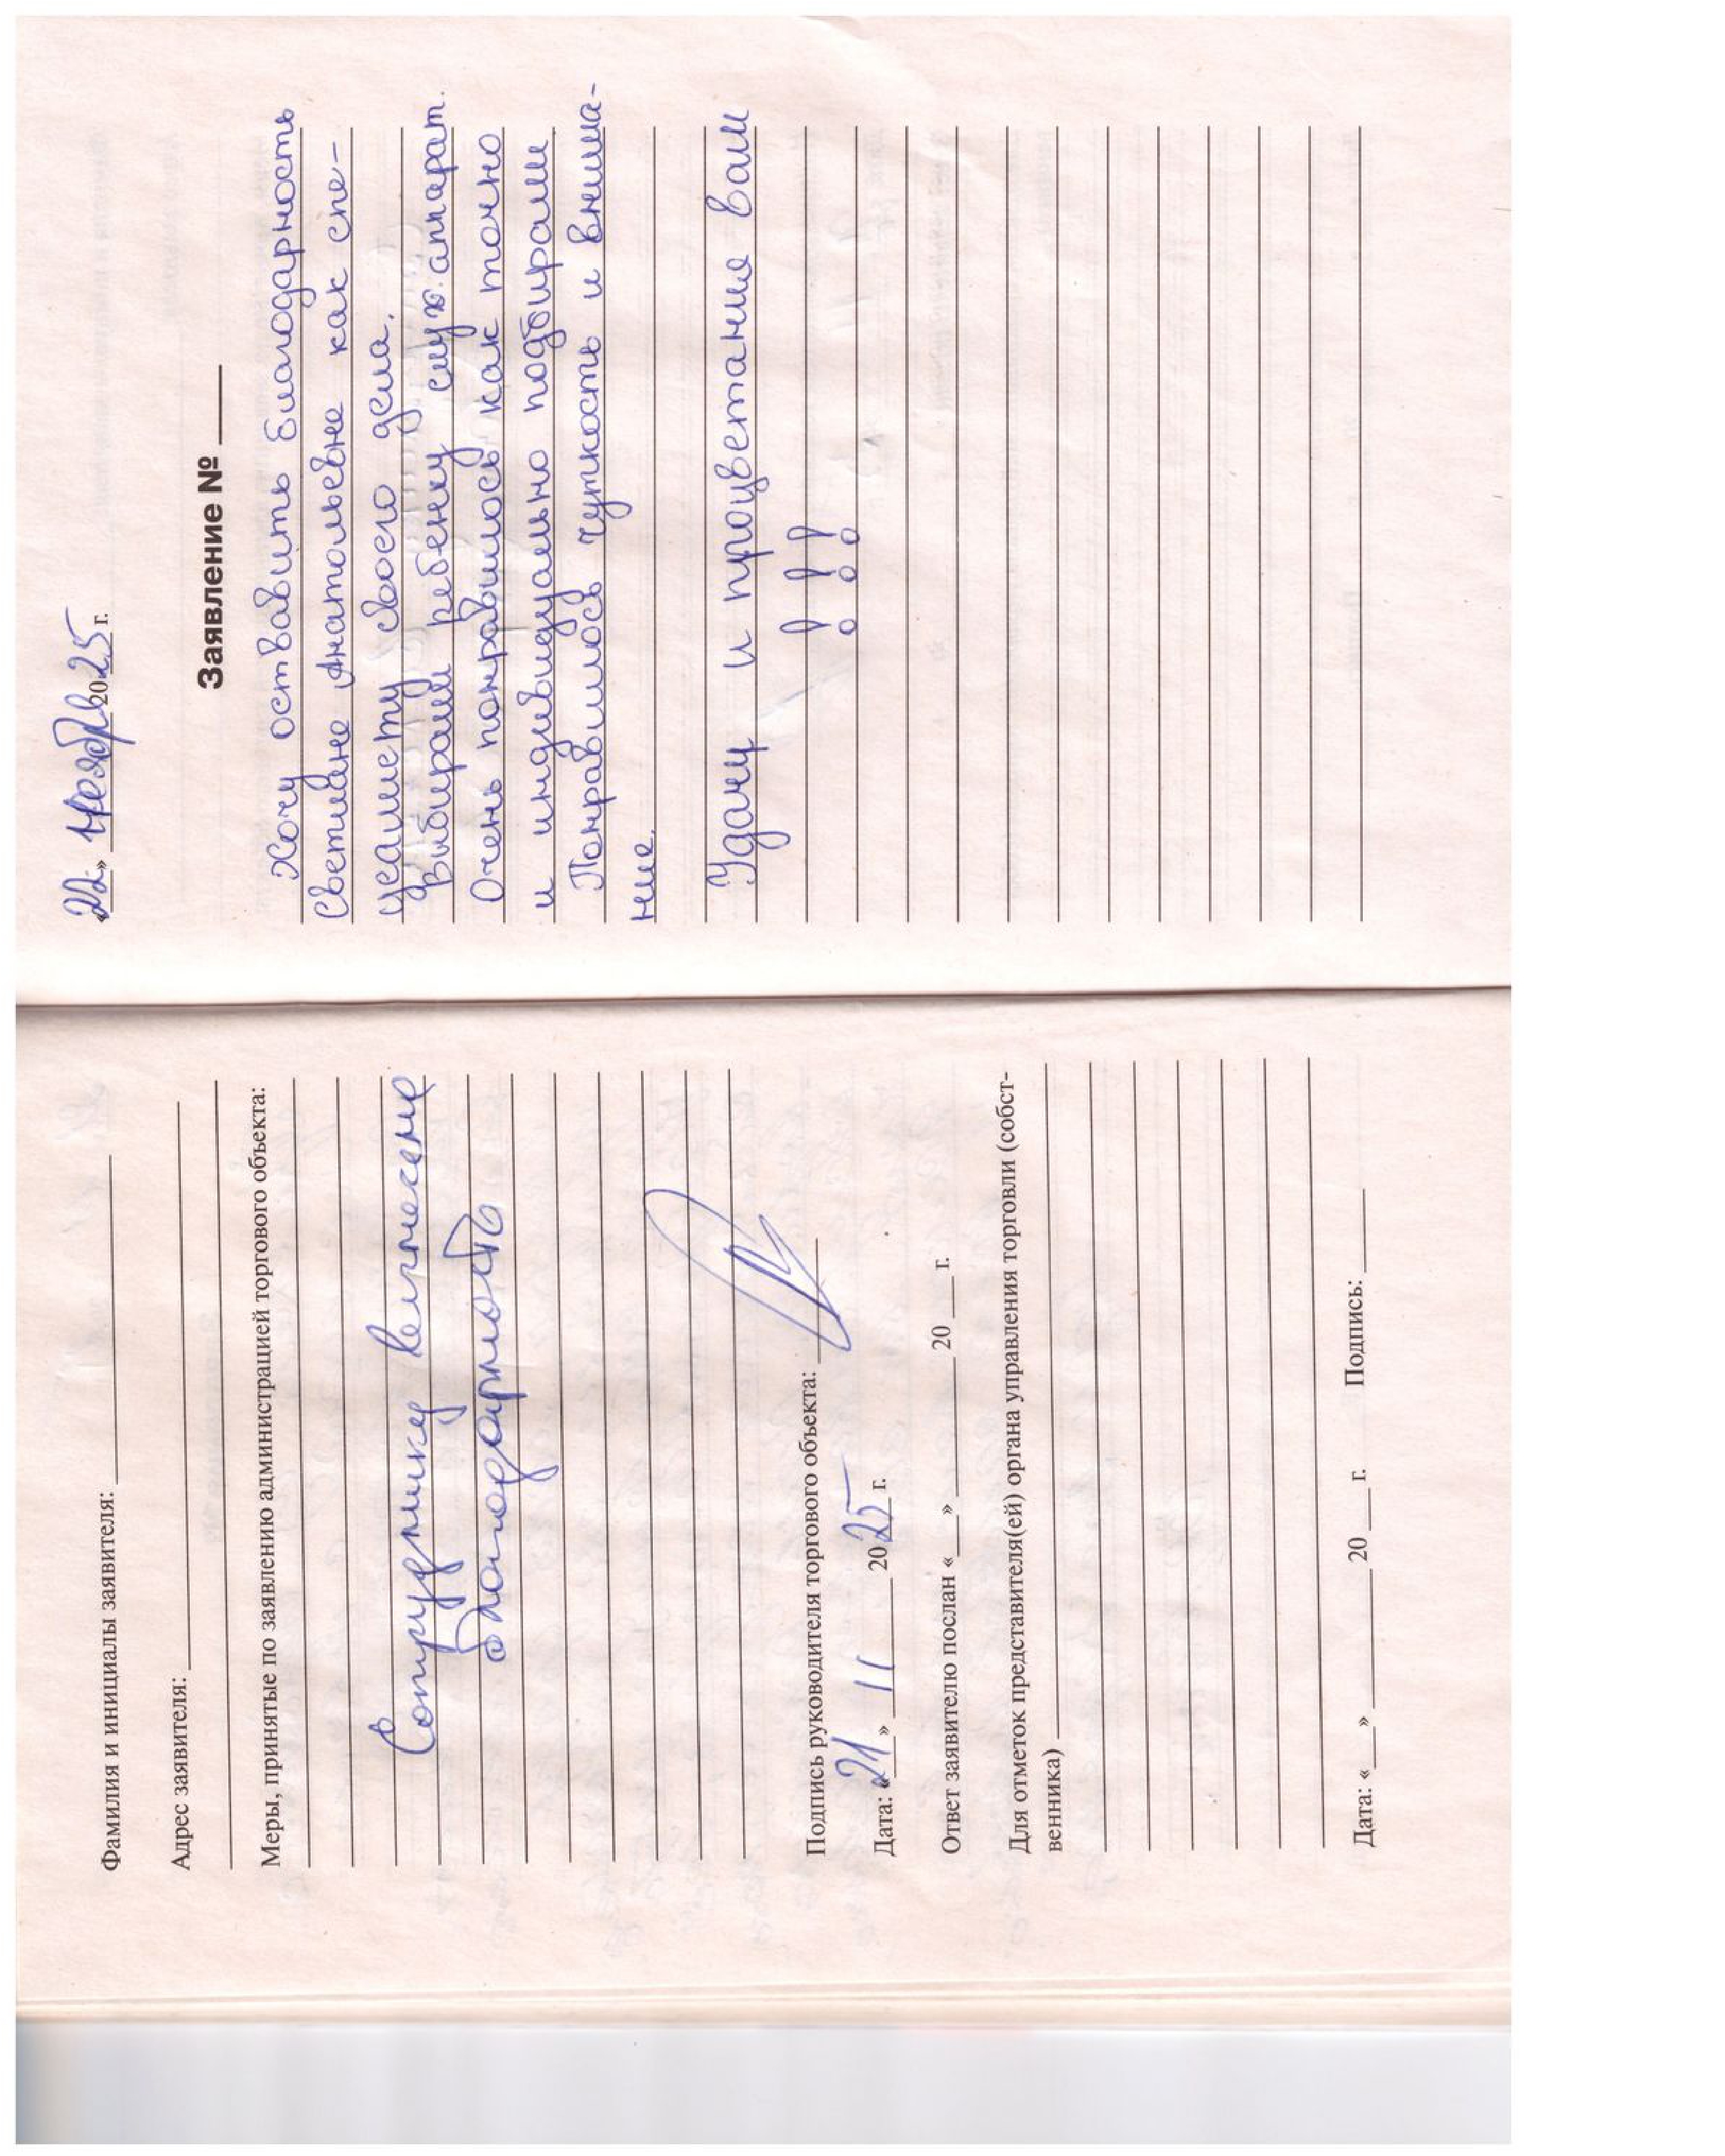 Фамилия и инициалы заявителя:
Адрес заявителя:
Меры, принятые по заявлению администрацией торгового объекта:
Сотруднику вынесена
благодарность
Подпись руководителя торгового объекта:
Дата: «21» 11 2025 г.
Ответ заявителю послан «___» ________ 20 ___ г.
Для отметок представителя(ей) органа управления торговли (собст-
венника)
Дата: «___» ________ 20 ___ г. Подпись:
«22» ноября 2025 г.
Заявление № ____
Хочу оставить благодарность
Светлане Анатольевне как спе-
циалисту своего дела.
Выбирали ребенку слух. аппарат.
Очень понравилось как точно
и индивидуально подбирали
Понравилось чуткость и внима-
ние.
Удачи и процветание вам
!!!